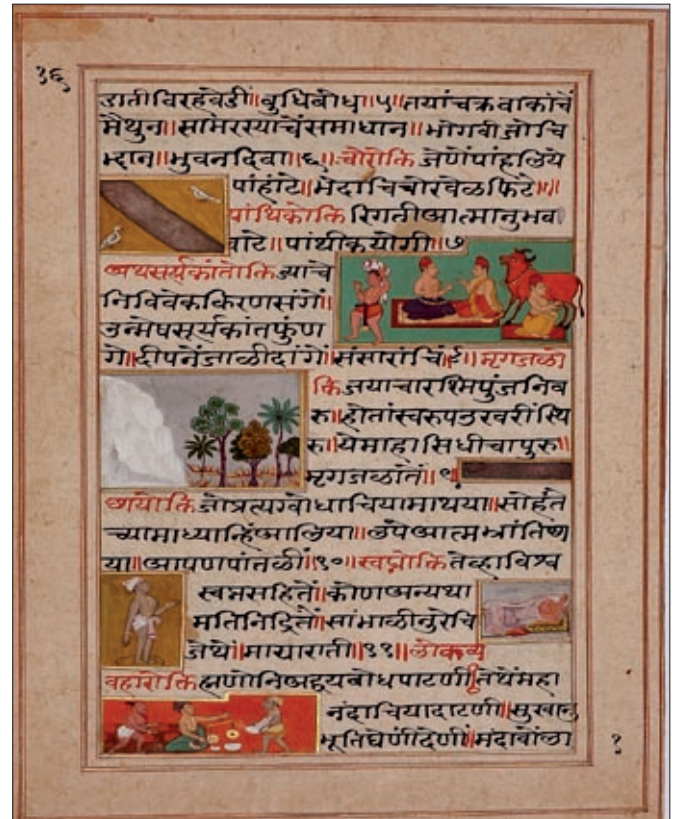 ३६
डातीविरहवेडीं॥बुधिबोध॥५॥तयांचक्रवाकांचें
मैथुन॥सामरस्याचेंसमाधान॥भोगवीजोचि
म्दान॥भुवनदिवा॥६॥चोरोक्ति जेणेंपांहालिये
पांहांटे॥भेदाचिचोरवेळफिटे॥
पांथिकोक्ति रिगतीआत्मानुभव
वाटे॥पांथीकयोगी॥७
अथसूर्यकांतोक्ति ज्याचे
निविवेककिरणसंगें॥
उन्मेषसूर्यकांतफुंण
गे॥दीपनेंजाळीदांगें॥संसारांचिं॥८॥मृगजळो
क्ति जयाचारश्मिपुंजनिब
रु॥होतांस्वरुपउखरींस्थि
रु॥येमाहासिधीचापुरु॥
मृगजळातें॥९
छायोक्ति जोप्रत्यग्बोधाचियामाथया॥सोहंते
च्यामाध्यान्हिंआलिया॥लपेआत्मभ्रांतिछा
या॥आपणपांतळीं॥१०॥स्वप्नोक्ति तेव्हाविश्व
स्वप्नसहितें॥कोणअन्यथा
मतिनिद्रितें॥सांभाळीनुरेचि
जेथें॥मायाराती॥११॥लोकव्य
वहारोक्ति ह्मणोनिअद्वयबोधपाटणीं॥तेथेंमहा
नंदाचियादाटणी॥सुखानु
भूतिघेणींदेणीं॥मंदावोंला
१